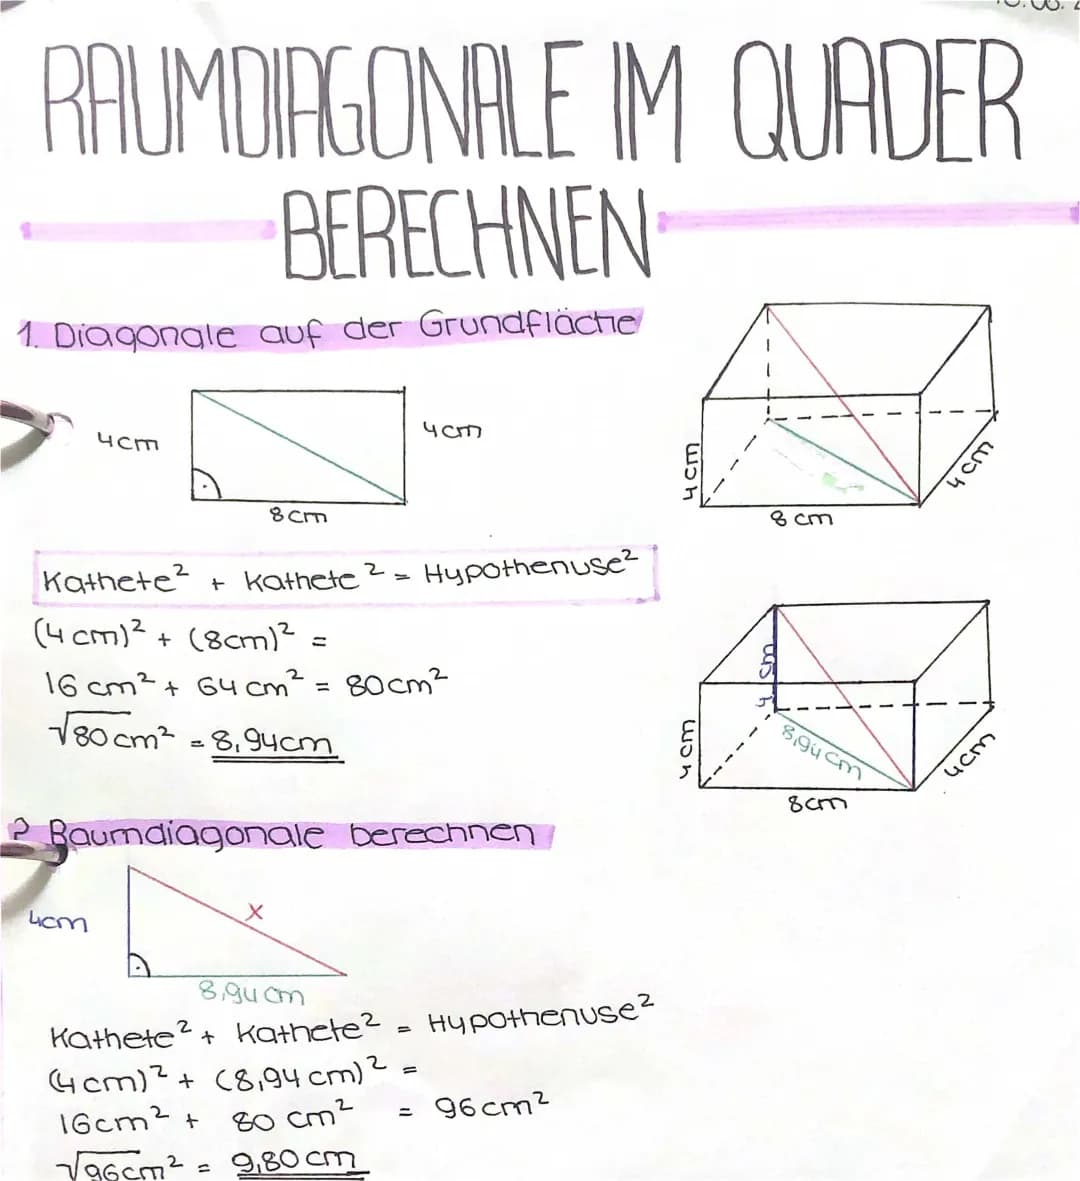 RAUMDIAGONALE IM QUADER
BERECHNEN
1. Diagonale auf der Grundfläche
4cm
4cm
8cm
4cm
8 cm
4 cm
Kathete² + Kathete² = Hypothenuse²
(4 cm)² + (8cm)² =
16 cm² + 64 cm² = 80cm²
√80 cm² = 8,94cm
4 cm
4cm
8,94 cm
4cm
8cm
2 Raumdiagonale berechnen
4cm
x
8,94 cm
Kathete² + Kathete² = Hypothenuse²
(4cm)² + (8,94 cm)² =
16cm² + 80 cm² = 96 cm²
√96cm² = 9,80 cm